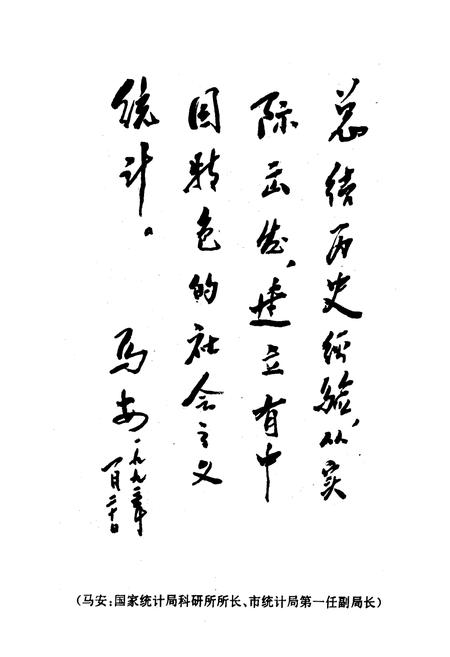 总结历史经验，从实
际出发，建立有中
国特色的社会主义
统计。
马安
一九九二年
一月二十日
（马安：国家统计局科研所所长、市统计局第一任副局长）